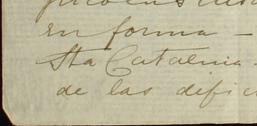 en forma -
Sta Catalina -
de las defic